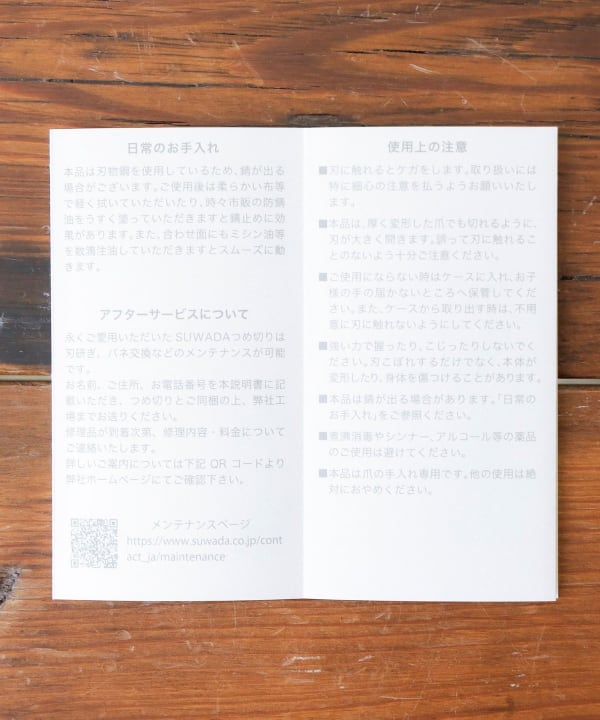 日常のお手入れ
本品は刃物鋼を使用しているため、錆が出る
場合がございます。ご使用後は柔らかい布等
で軽く拭いていただいたり、時々市販の防錆
油をうすく塗っていただきますと錆止めに効
果があります。また、合わせ面にもミシン油等
を数滴注油していただきますとスムーズに動
きます。
アフターサービスについて
永くご愛用いただいたSUWADAつめ切りは
刃研ぎ、バネ交換などのメンテナンスが可能
です。
お名前、ご住所、お電話番号を本説明書に記
載いただき、つめ切りとご同梱の上、弊社工
場までお送りください。
修理品が到着次第、修理内容・料金について
ご連絡いたします。
詳しいご案内については下記 QR コードより
弊社ホームページにてご確認下さい。
メンテナンスページ
https://www.suwada.co.jp/cont
act_ja/maintenance
使用上の注意
■刃に触れるとケガをします。取り扱いには
特に細心の注意を払うようお願いいたし
ます。
■本品は、厚く変形した爪でも切れるように、
刃が大きく開きます。誤って刃に触れるこ
とのないよう十分ご注意ください。
■ご使用にならない時はケースに入れ、お子
様の手の届かないところへ保管してくだ
さい。また、ケースから取り出す時は、不用
意に刃に触れないようにしてください。
■強い力で握ったり、こじったりしないでく
ださい。刃こぼれするだけでなく、本体が
変形したり、身体を傷つけることがあります。
■本品は錆が出る場合があります。「日常の
お手入れ」をご参照ください。
■煮沸消毒やシンナー、アルコール等の薬品
のご使用は避けてください。
■本品は爪の手入れ専用です。他の使用は絶
対におやめください。